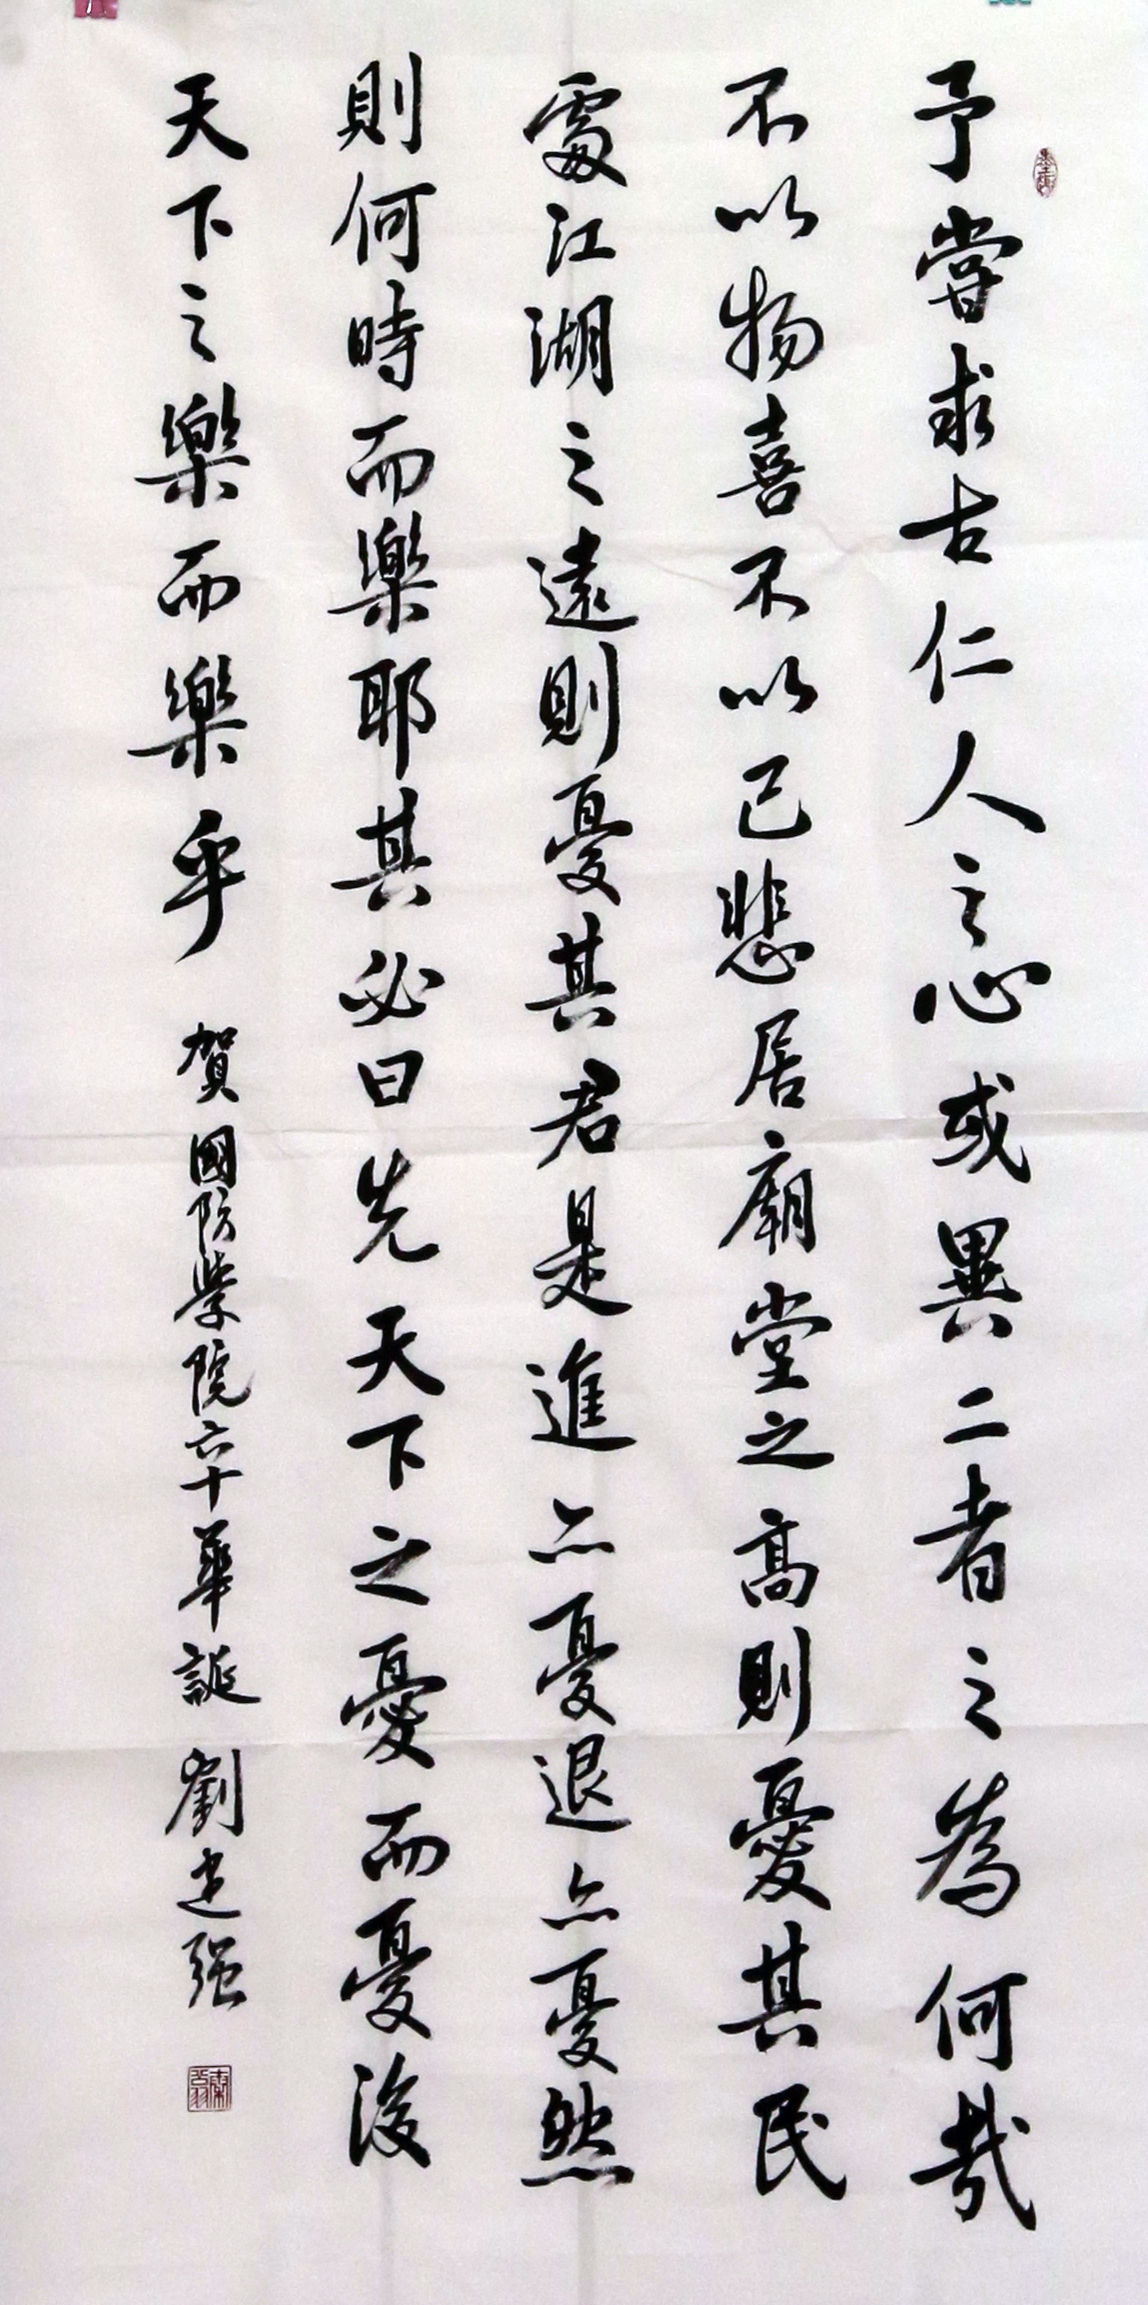 予嘗求古仁人之心或異二者之為何哉
不以物喜不以己悲居廟堂之高則憂其民
處江湖之遠則憂其君是進亦憂退亦憂然
則何時而樂耶其必曰先天下之憂而憂後
天下之樂而樂乎 賀國防學院六十華誕 劉建强